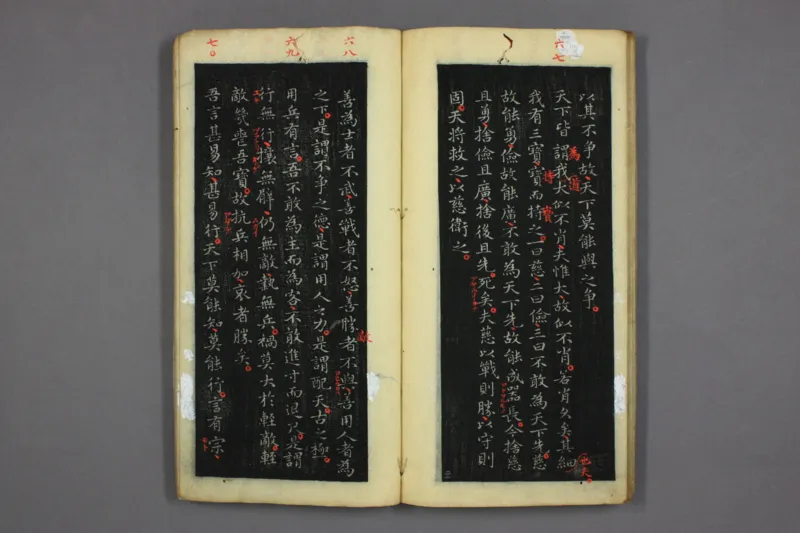 六七
以其不争故天下莫能與之争
天下皆謂我大似不肖夫惟大故似不肖若肖久矣其細
為 道
我有三寶寶而持之一曰慈二曰儉三曰不敢為天下先慈
持 寶
故能勇儉故能廣不敢為天下先故能成器長今捨慈
且勇捨儉且廣捨後且先死矣夫慈以戰則勝以守則
固天将救之以慈衛之
也夫
六八
善為士者不武善戰者不怒善勝者不與善用人者為
敵
之下是謂不争之德是謂用人之力是謂配天古之極
六九
用兵有言吾不敢為主而為客不敢進寸而退尺是謂
行無行攘無臂仍無敵執無兵禍莫大於輕敵輕
敵幾喪吾寶故抗兵相加哀者勝矣
七〇
吾言甚易知甚易行天下莫能知莫能行言有宗